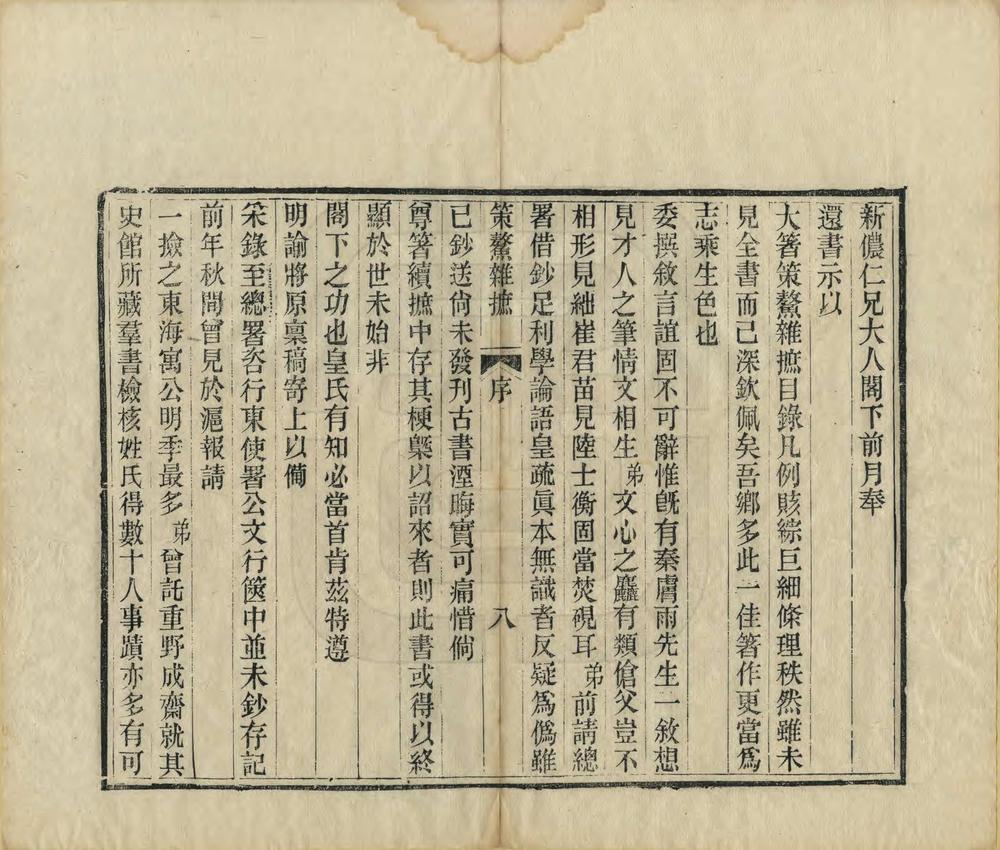 新儂仁兄大人閣下前月奉
還書示以
大箸策鰲雜摭目錄凡例賅綜巨細條理秩然雖未
見全書而已深欽佩矣吾鄉多此一佳箸作更當爲
志乘生色也
委撰敘言誼固不可辭惟旣有秦膚雨先生一敘想
見才人之筆情文相生弟文心之麤有類傖父豈不
相形見絀崔君苗見陸士衡固當焚硯耳弟前請總
署借鈔足利學論語皇疏眞本無識者反疑爲僞雖
策鰲雜摭 序 八
已鈔送尙未發刊古書湮晦實可痛惜倘
尊箸續摭中存其梗槩以詔來者則此書或得以終
顯於世未始非
閣下之功也皇氏有知必當首肯茲特遵
明諭將原稟稿寄上以備
采錄至總署咨行東使署公文行篋中並未鈔存記
前年秋間曾見於滬報請
一撿之東海寓公明季最多弟曾託重野成齋就其
史館所藏羣書檢核姓氏得數十人事蹟亦多有可